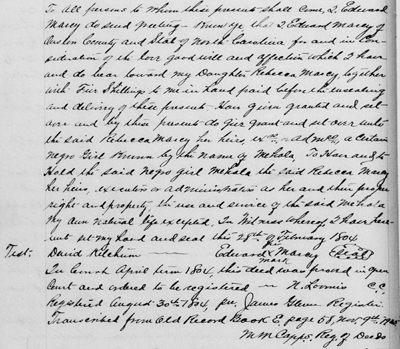 To all persons to whom these presents shall come, I Edward
Marcy do send greeting - Know ye that I Edward Marcy of
Onslow County and State of North Carolina for and in Con-
sideration of the love good will and affection which I have
and do bear toward my Daughter Rebecca Marcy, together
with Five Shillings to me in hand paid before the ensealing
and delivery of these present - Have given granted and set
over and by these presents do give grant and set over unto
the said Rebecca Marcey her heirs, exrs, & admrs, a certain
negro Girl known by the name of Mehala To Have and to
Hold the said Negro girl Mehala the said Rebecca Marcy
her heirs, executors or administrators as her and their proper
right and property the use and service of the said Mehala
my own natural life excepted. In Witness whereof I have here-
unto set my hand and seal this 28th of February 1804
Test: David Ketchum Edward his x mark Marcy (Seal)
In Onslow April term 1804, this deed was proved in open
court and ordered to be registered — N. Loomis C.C.
Registered August 30th 1804, per. James Glenn Register.
Transcribed from Old Record Book E, page 58, Nov. 9th
M M Capps, Reg of Deeds